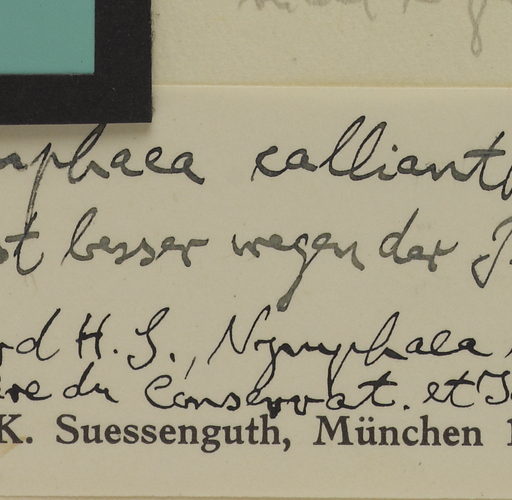 mphaea callianth
st besser wegen der
rd H. S., Nymphaea
re du Conservat. et
K. Suessenguth, München 1